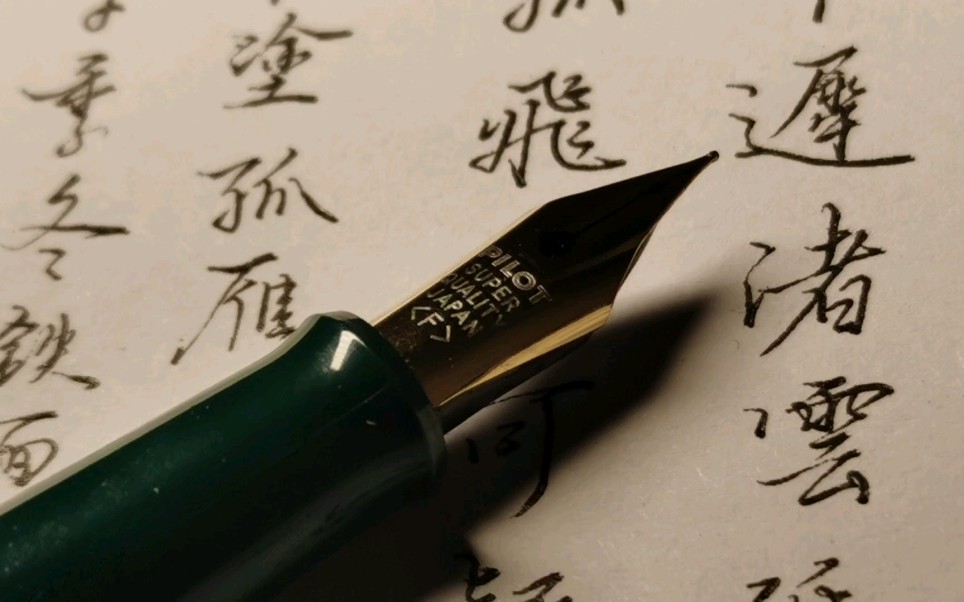 遲渚雲
飛可
塗孤雁
季冬鉄面
PILOT
SUPER
QUALITY
JAPAN
<F>